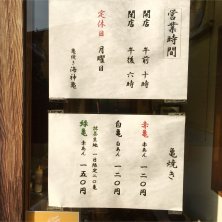 営業時間
開店 午前 十時
閉店 午後 六時
定休日 月曜日
亀焼き 海神亀
亀焼き
赤亀 赤あん 一二〇円
白亀 白あん 一二〇円
緑亀 赤あん 一五〇円
抹茶生地 一日限定二〇亀